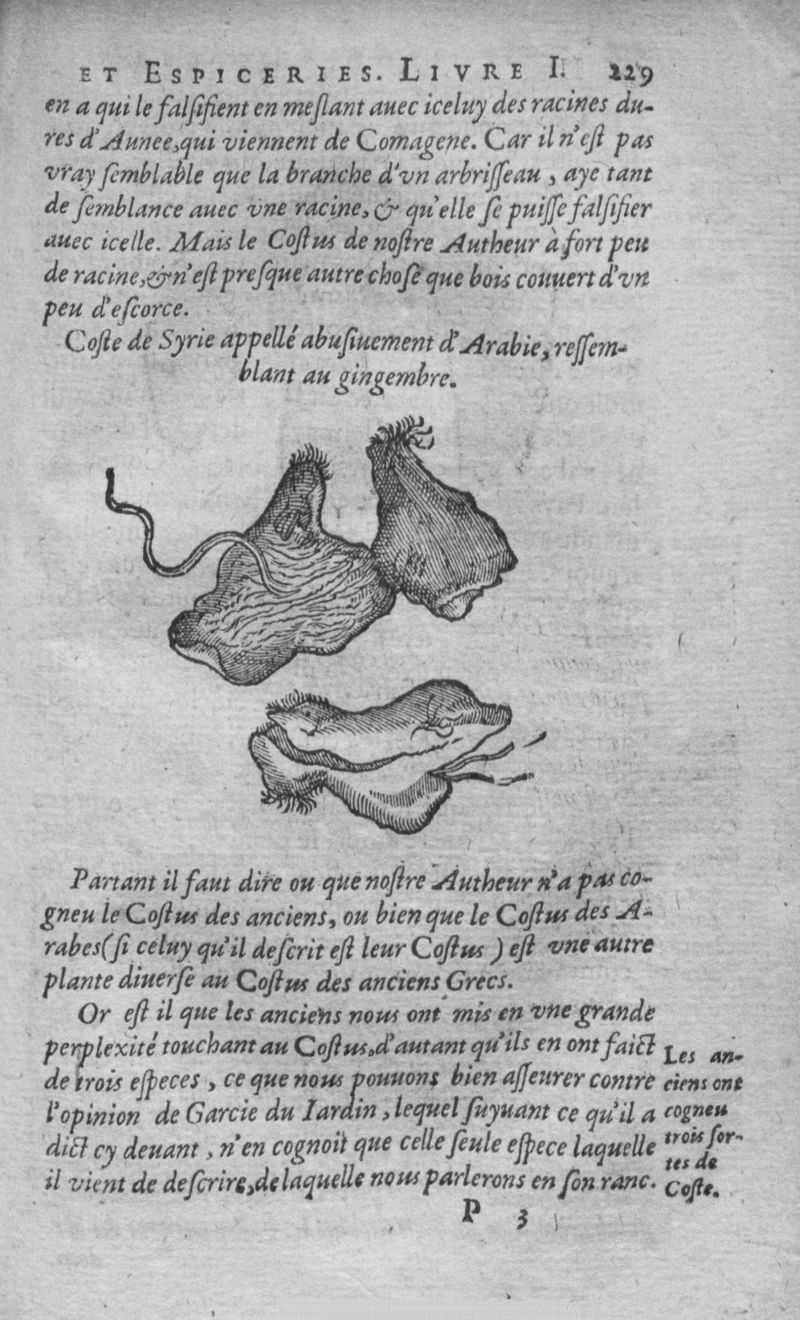 ET ESPICERIES. LIVRE I. 229
en a qui le falſifient en meſlant auec iceluy des racines du-
res d'Aunee, qui viennent de Comagene. Car il n'eſt pas
vray ſemblable que la branche d'vn arbriſſeau, aye tant
de ſemblance auec vne racine, & qu'elle ſe puiſſe falſifier
auec icelle. Mais le Coſtus de noſtre Autheur à fort peu
de racine, & n'eſt preſque autre choſe que bois couuert d'vn
peu d'eſcorce.
Coſte de Syrie appellé abuſiuement d'Arabie, reſſem-
blant au gingembre.
Partant il faut dire ou que noſtre Autheur n'a pas co-
gneu le Coſtus des anciens, ou bien que le Coſtus des A-
rabes (ſi celuy qu'il deſcrit eſt leur Coſtus) eſt vne autre
plante diuerſe au Coſtus des anciens Grecs.
Or eſt il que les anciens nous ont mis en vne grande
perplexité touchant au Coſtus, d'autant qu'ils en ont faict
de trois eſpeces, ce que nous pouuons bien aſſeurer contre
l'opinion de Garcie du Iardin, lequel ſuyuant ce qu'il a
dict cy deuant, n'en cognoit que celle ſeule eſpece laquelle
il vient de deſcrire, de laquelle nous parlerons en ſon ranc.
Les an-
ciens ont
cogneu
trois ſor-
tes de
Coſte.
P 3